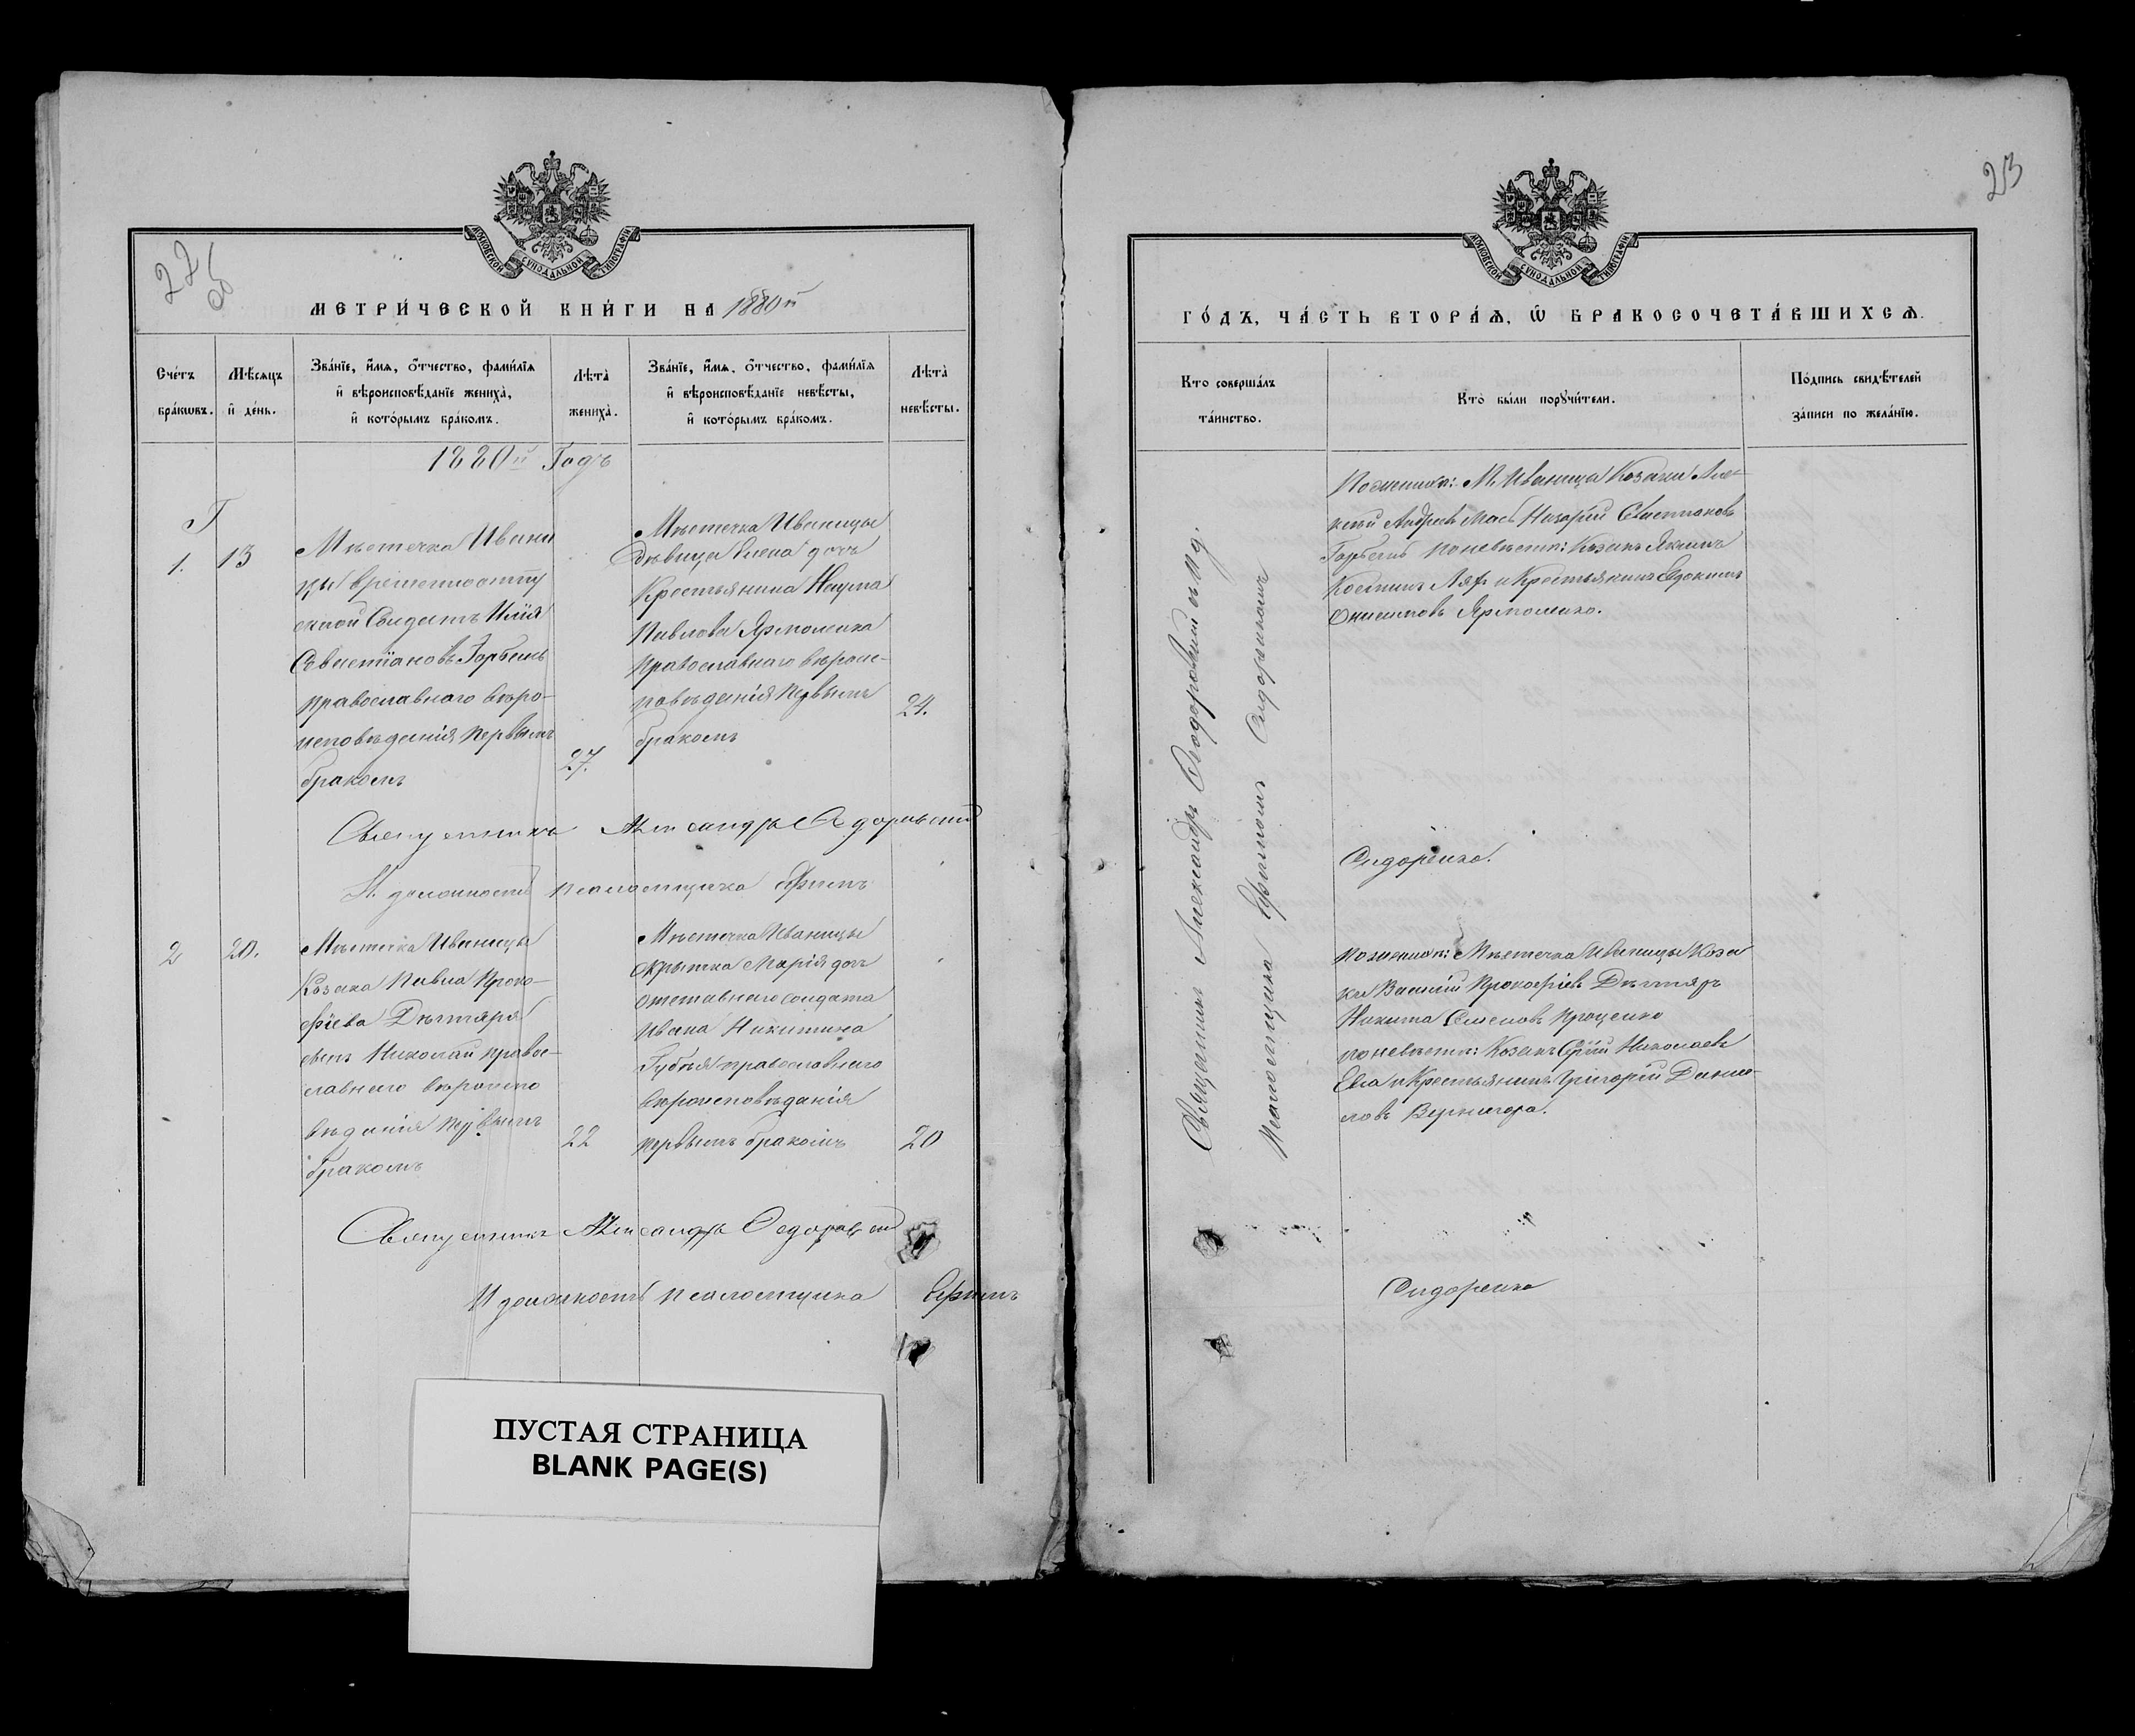 22
об
МОСКОВСКОЙ СУНОДАЛЬНОЙ ТИПОГРАФІИ
МЕТРИ́ЧЕСКОЙ КНИ́ГИ НА 1880й
Сче́тъ бра́кωвъ.
Мѣ́сяцъ и҆ де́нь.
Зва́нїе, и҆́мѧ, ѻ҆́тчество, фами́лїѧ
и҆ вѣроисповѣ́данїе жениха̀,
и҆ кото́рымъ бра́комъ.
Лѣта̀
жениха̀.
Зва́нїе, и҆́мѧ, ѻ҆́тчество, фами́лїѧ
и҆ вѣроисповѣ́данїе невѣ́сты,
и҆ кото́рымъ бра́комъ.
Лѣта̀
невѣ́сты.
1880й Годъ
1.
13
Мѣстечка Ивани
цы временноотпу
скной Солдатъ Илія
Севастіановъ Горбань
православнаго вѣро-
исповѣданія первымъ
бракомъ
27.
Мѣстечка Иваницы
дѣвица Елена дочь
Крестьянина Наума
Павлова Ярмоленка
православнаго вѣроис-
повѣданія первымъ
бракомъ
24.
Священникъ Александръ
псаломщика Ефимъ
2
20.
Мѣстечка Иваницы
Козака Павла Проко-
фіева Дѣхтяря
сынъ Николай правос-
лавнаго вѣроиспо
вѣданія первымъ
бракомъ
22
Мѣстечка Иваницы
Марія доч
отставнаго солдата
Ивана Никитина
православнаго
вѣроисповѣданія
первымъ бракомъ
20
Священникъ Александръ
И должность псаломщика Ефимъ
23
МОСКОВСКОЙ СУНОДАЛЬНОЙ ТИПОГРАФІИ
ГО́ДЪ, ЧА́СТЬ ВТОРА́Ѧ, Ѡ҆ БРАКОСОЧЕТА́ВШИХСѦ.
Кто соверша́лъ
та́инство.
Кто̀ бы́ли порꙋчи́тели.
По́дпись свидѣ́телей
за́писи по жела́нїю.
Священникъ Александръ
Псаломщика Ефимомъ Сидоренкомъ
По женихѣ: М. Иваница Козаки Але-
ксѣй Андреевъ Назарій Севастіановъ
Горбань по невѣстѣ: Козакъ Якимъ
Костинъ и Крестьянинъ Евдокимъ
Онисимовъ Ярмоленко.
Сидоренко.
по женихѣ: Мѣстечка Иваницы Коза
ки Василій Прокофіевъ Дѣхтяръ
Никита Семеновъ Проценко
по невѣстѣ: Козакъ Сергій Николаевъ
и Крестьянинъ Григорій Дани-
ловъ Вернигора.
Сидоренко
ПУСТАЯ СТРАНИЦА
BLANK PAGE(S)